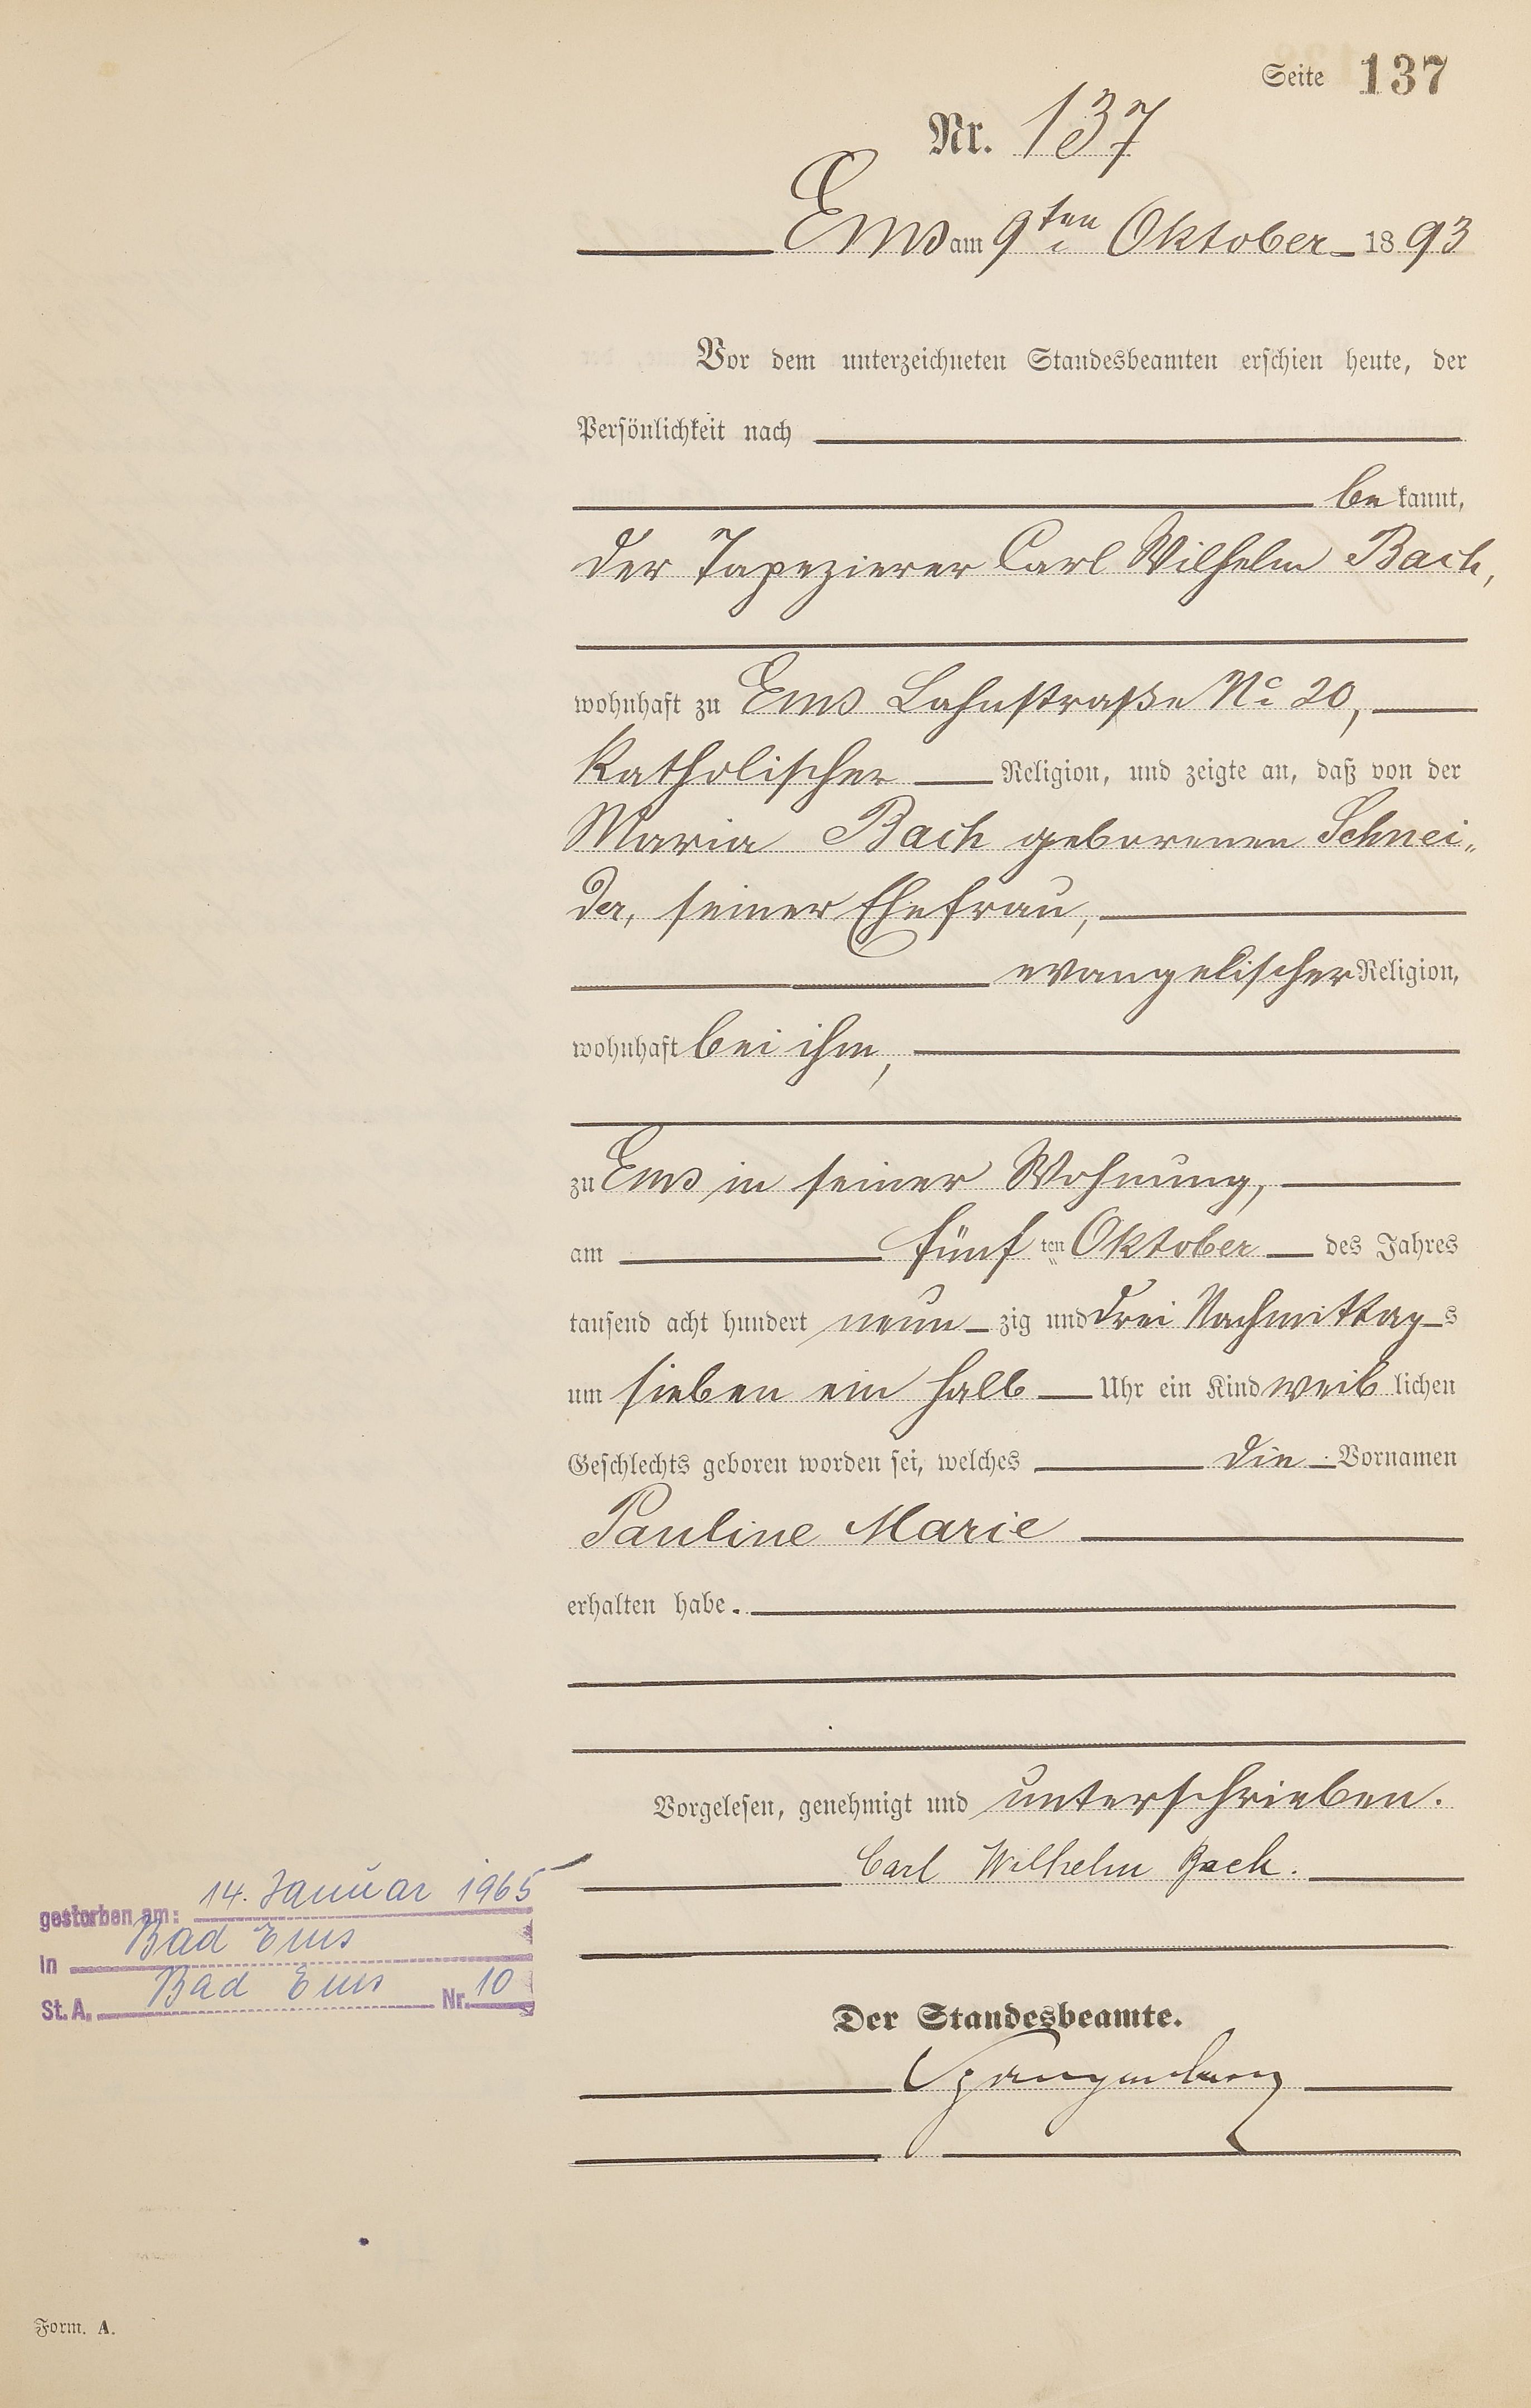 Seite 137
Nr. 137
Ems am 9ten Oktober 1893
Vor dem unterzeichneten Standesbeamten erschien heute, der
Persönlichkeit nach
bekannt,
der Tapezierer Carl Wilhelm Bach,
wohnhaft zu Ems Lahnstraße No 20,
katholischer Religion, und zeigte an, daß von der
Maria Bach geborenen Schnei„
der, seiner Ehefrau,
evangelischer Religion,
wohnhaft bei ihm,
zu Ems in seiner Wohnung,
am fünften Oktober des Jahres
tausend acht hundert neunzig und drei Nachmittags
um sieben ein halb Uhr ein Kind weiblichen
Geschlechts geboren worden sei, welches die Vornamen
Pauline Marie
erhalten habe.
Vorgelesen, genehmigt und unterschrieben.
Carl Wilhelm Bach.
gestorben am: 14. Januar 1965
in Bad Ems
St. A. Bad Ems Nr. 10
Der Standesbeamte.
Spangenberg
Form. A.